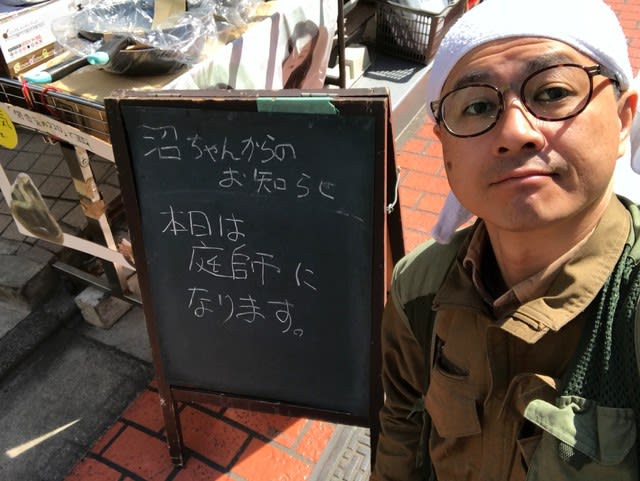 沼ちゃんからの
お知らせ
本日は
庭師に
なります。